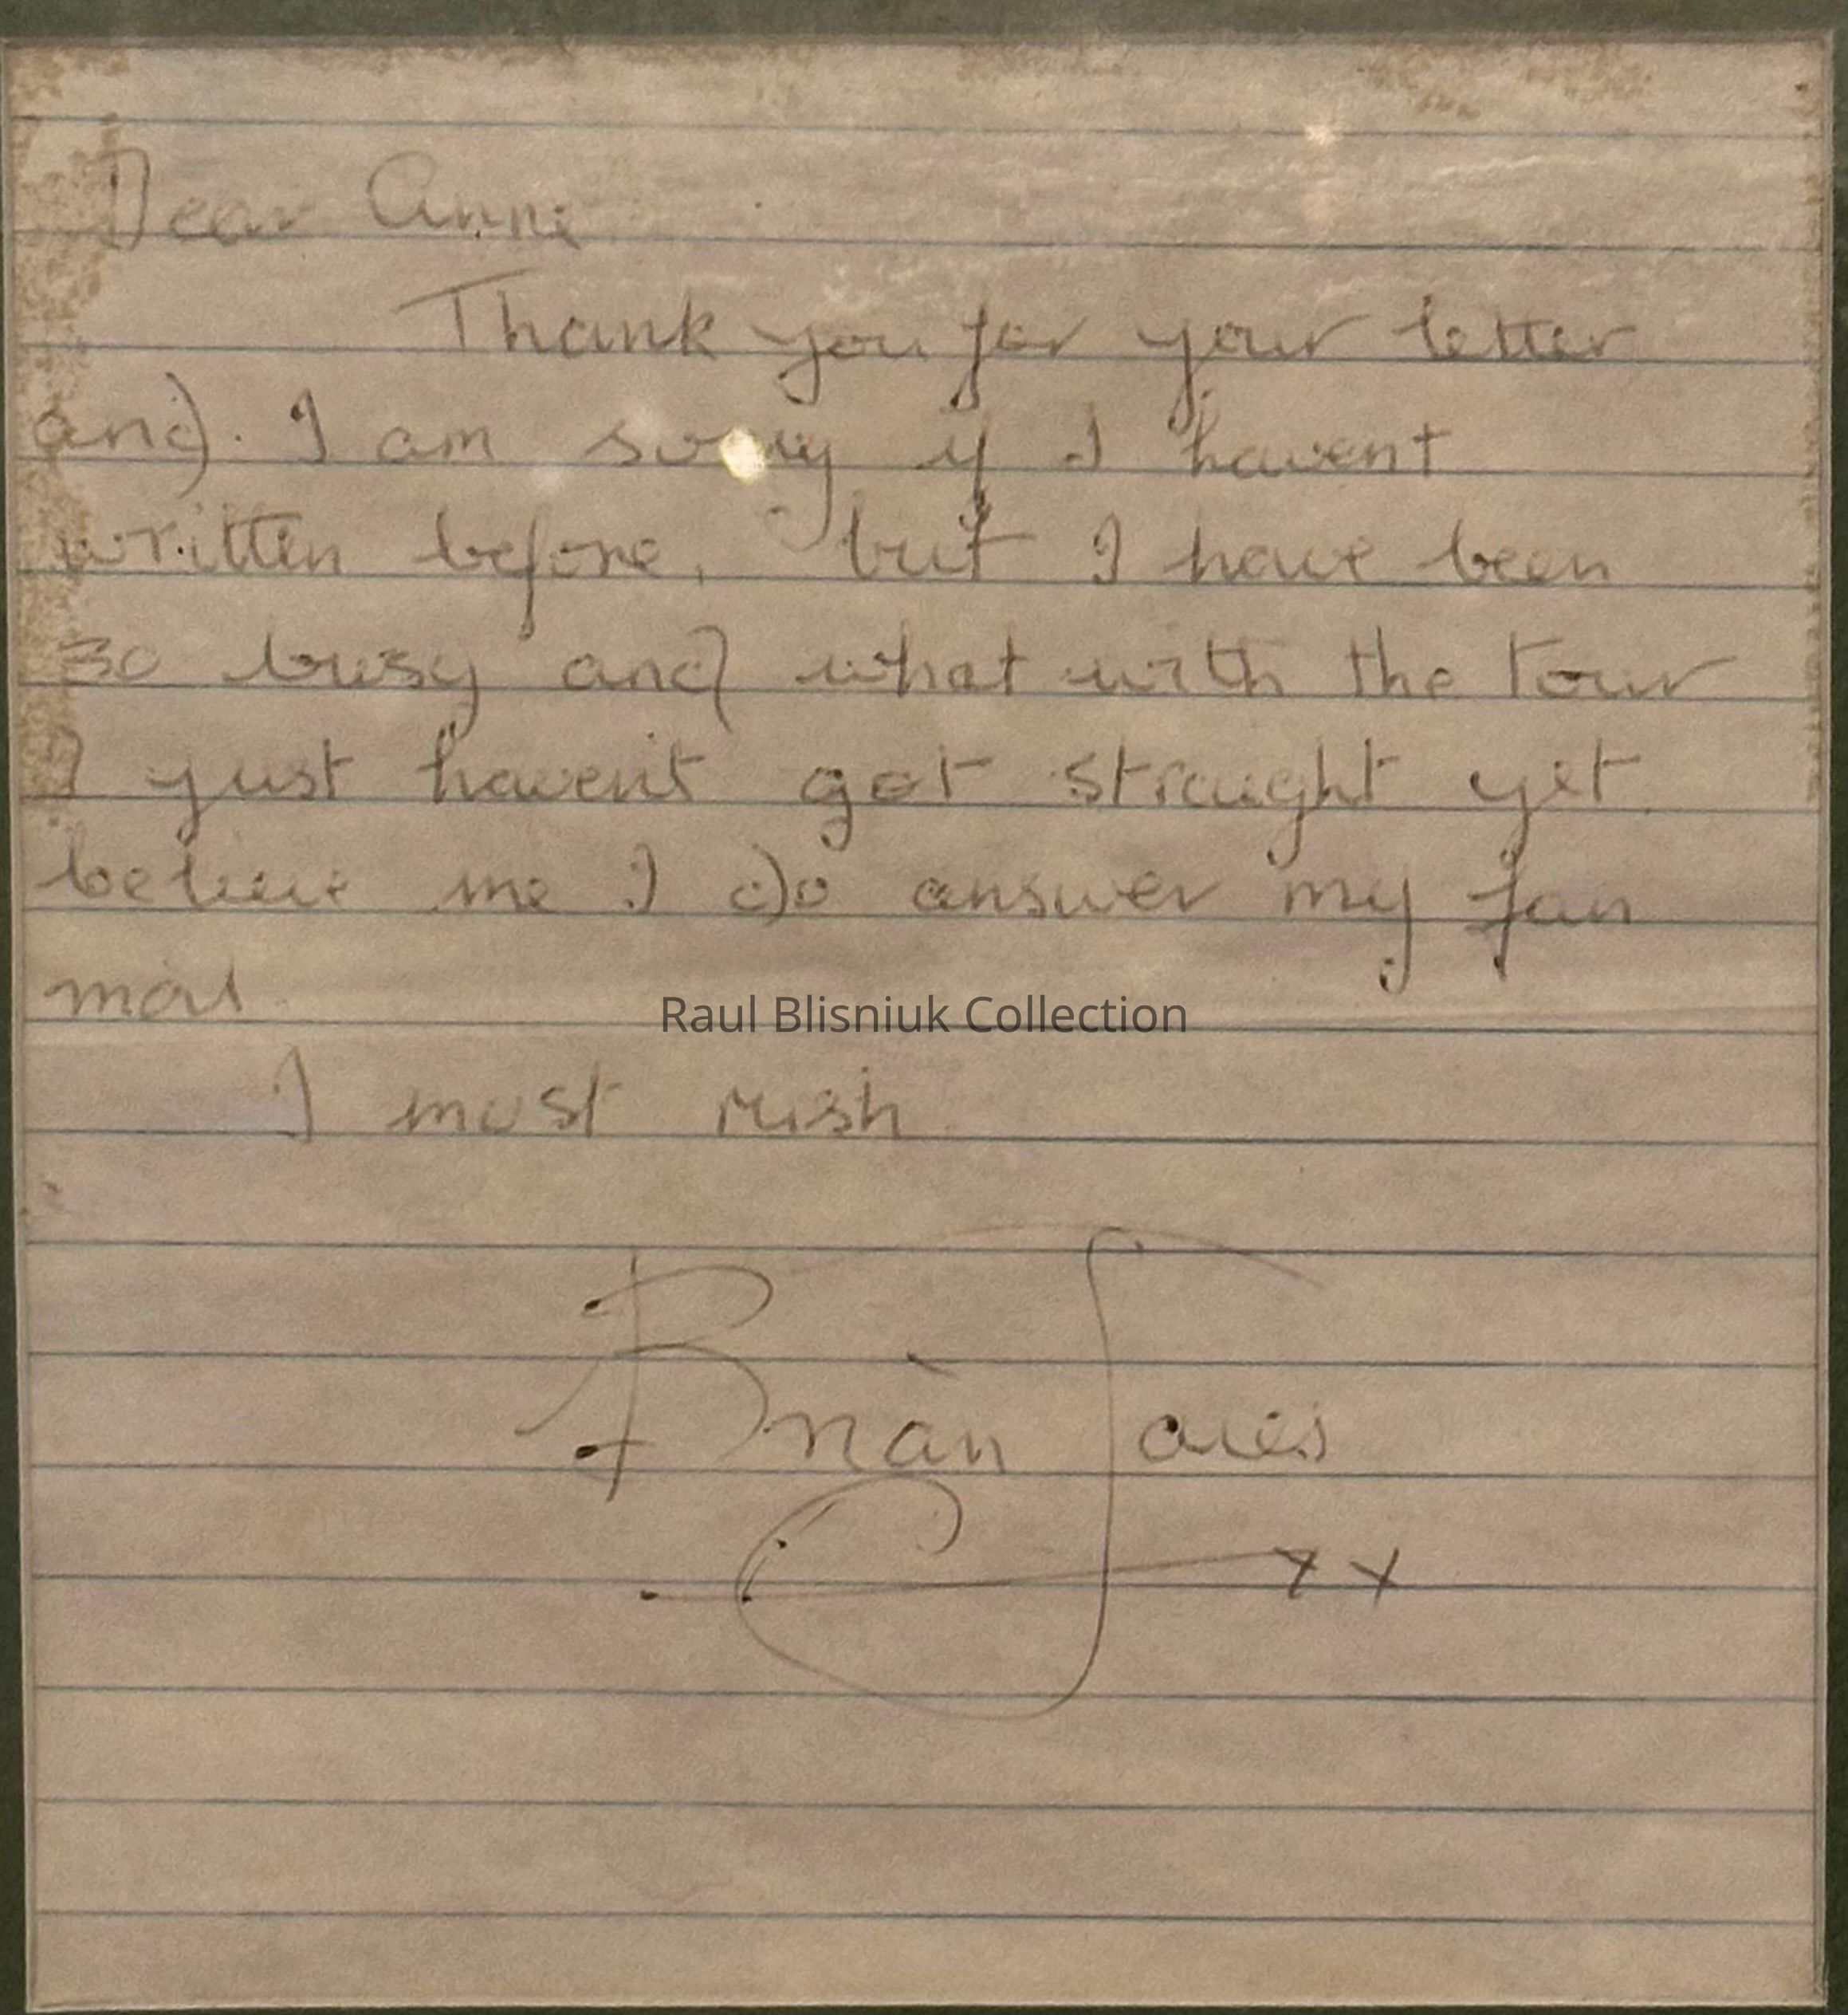 Dear Anne
Thank you for your letter
and. I am sorry if I havent
written before, but I have been
so busy and what with the tour
I just havent got straight yet.
believe me I do answer my fan
mail.
Raul Blisniuk Collection
I must rush
Brian Jones
xx